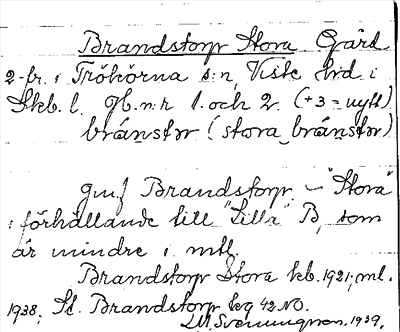 Brandstorp Stora Gård
2 fr. i Trökörna s:n, Viste hd i
Skb. l. gb. n:r 1. och 2 (+3 = nytt)
brȧnstər (stora brȧnstər)
gmf Brandstorp – "Stora"
i förhållande till "Lilla" B, som
är mindre i mtl.
Brandstorp Stora kb. 1921; ml.
1938; St. Brandstorp beg 42 NO.